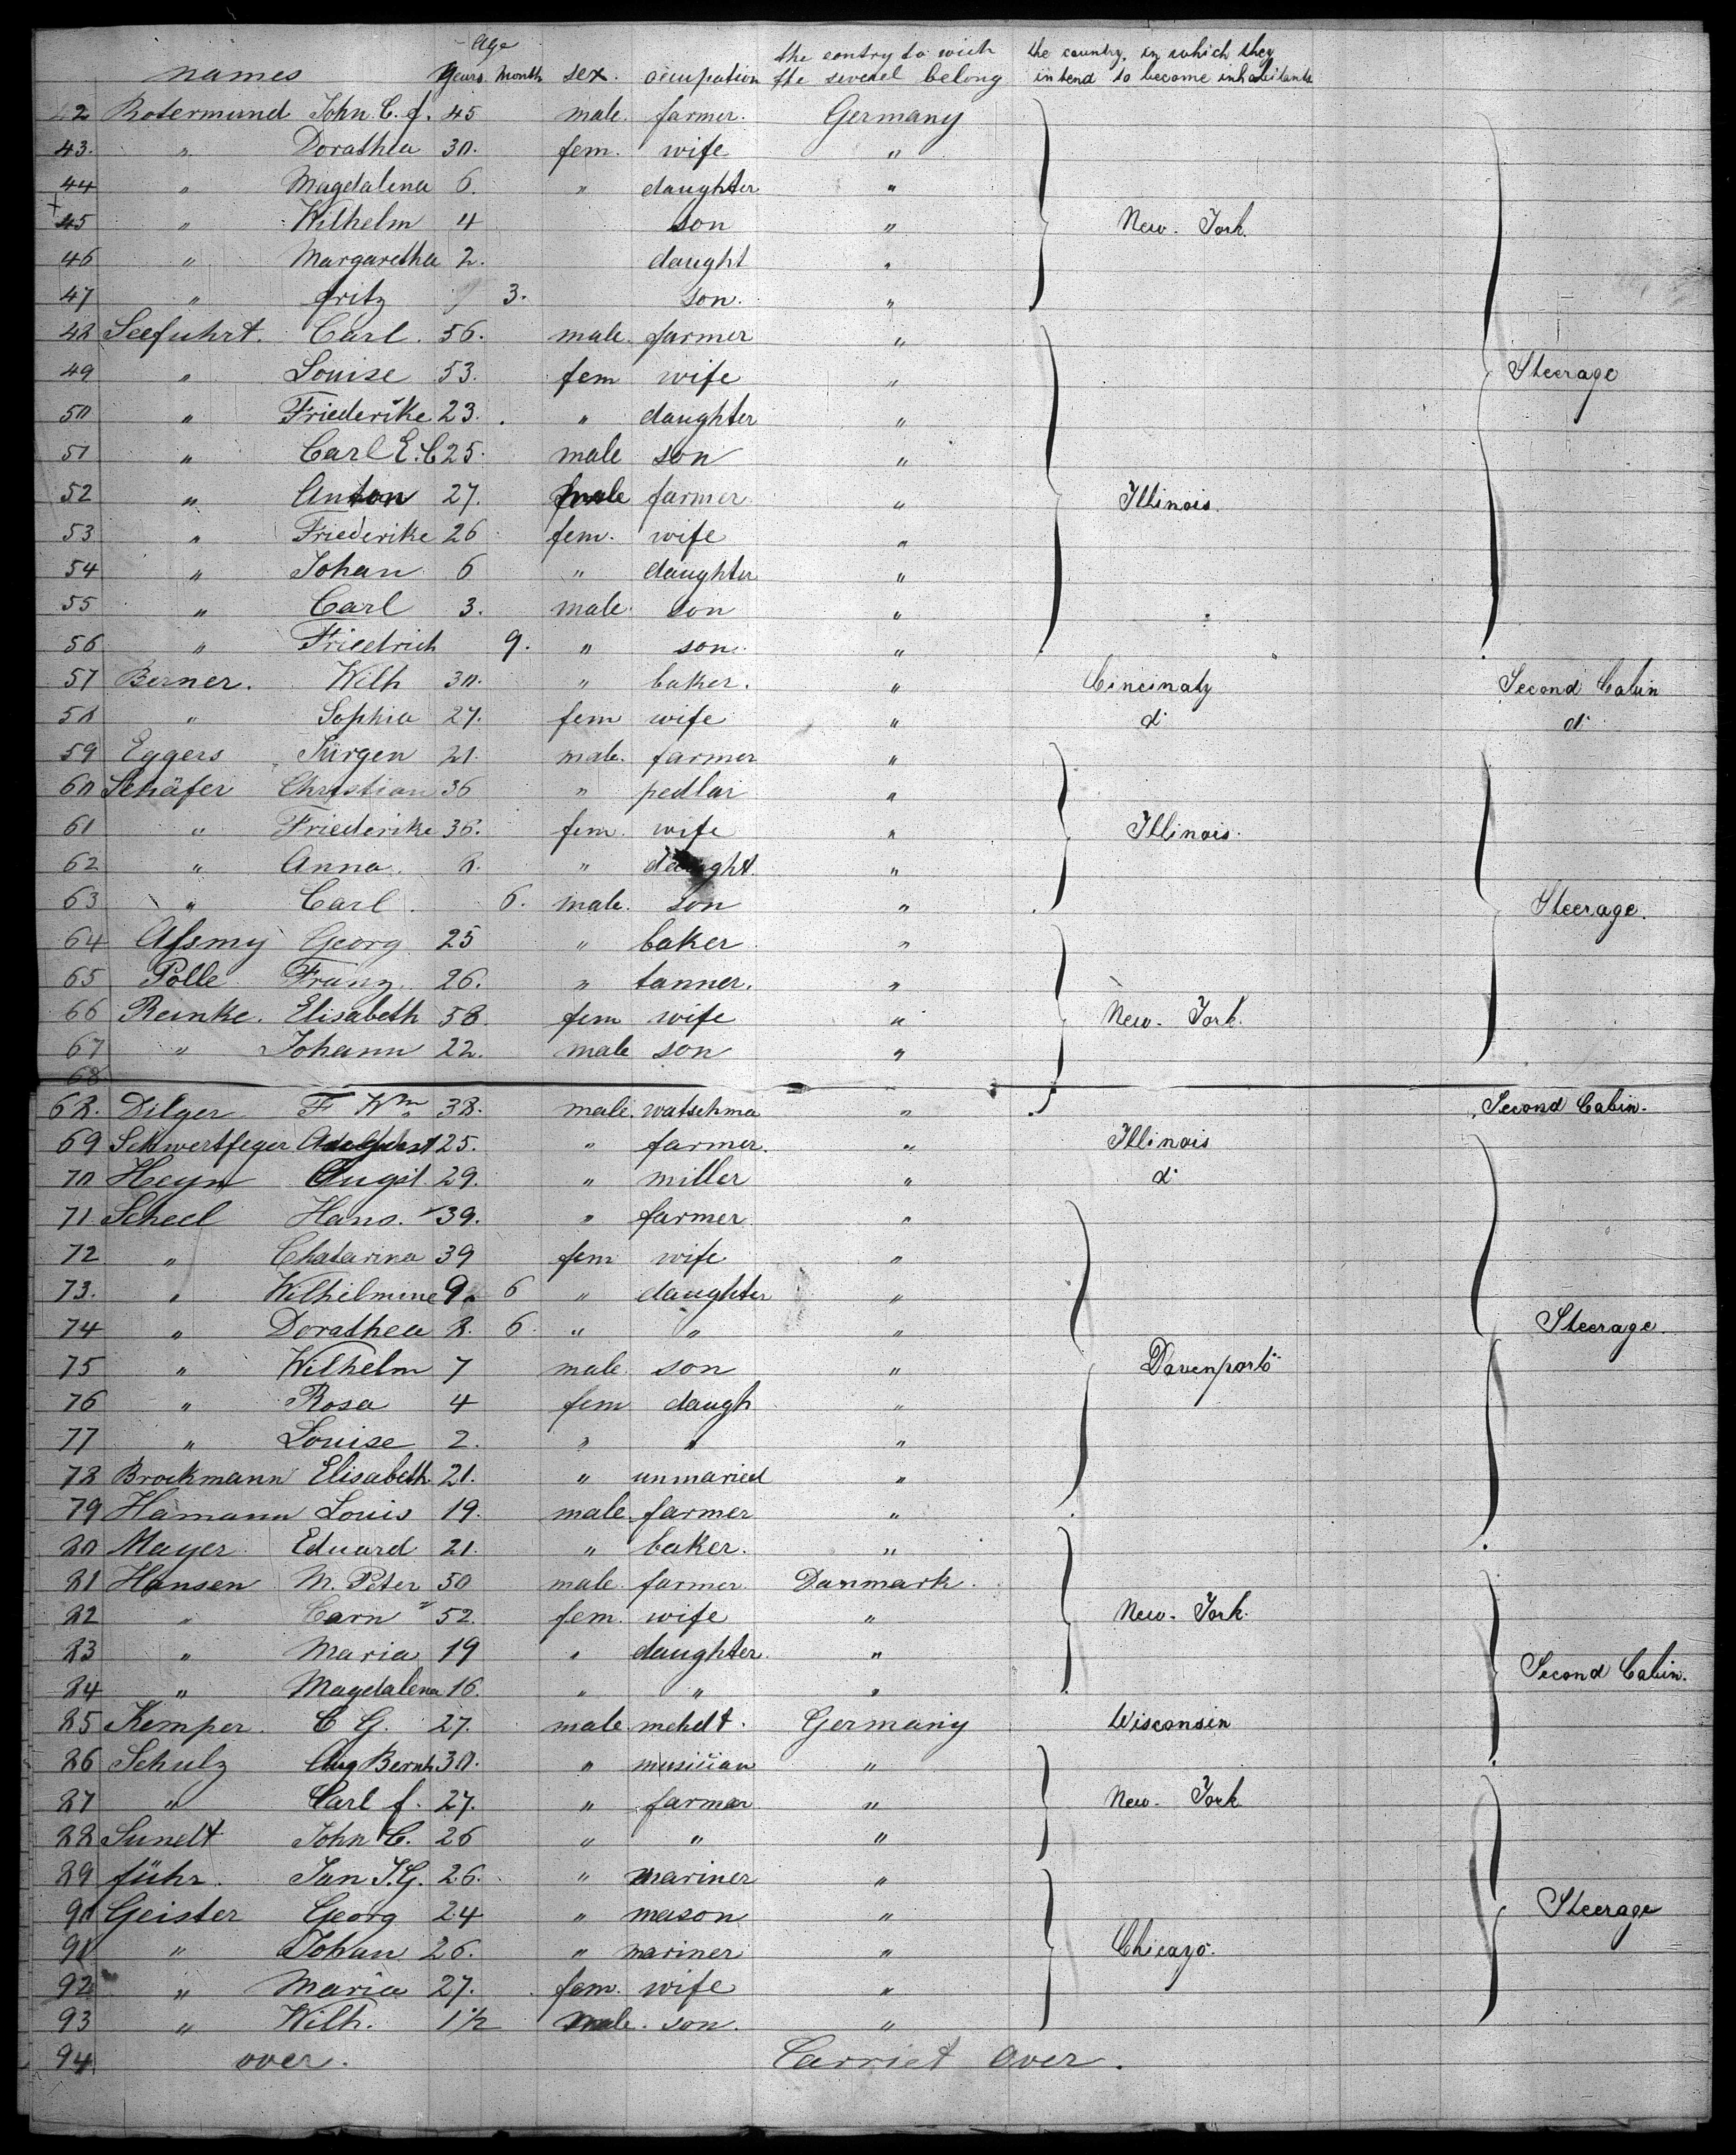 Age the contry to wich the country, in which they
names Years. Month sex. occupation the severel belong intend to become inhabitants
42 Rotermund John C. f. 45 male. farmer. Germany
43. " Dorathea 30. fem. wife "
44 " Magdalena 6. " daughter "
45 " Wilhelm 4 son " New-York.
46 " Margaretha 2. daught "
47 " fritz 3. son. "
48 Seefuhrt. Carl. 56. male. farmer "
49 " Louise 53. fem wife " Steerage
50 " Friederike 23. " daughter "
51 " Carl E. C 25. male son "
52 " Anton 27. male farmer. " Illinois.
53 " Friederike 26 fem. wife "
54 " Johan 6 " daughter "
55 " Carl 3. male. son "
56 " Friedrich 9. " son. "
57 Berner. Wilh 30. " baker. " Cincinaty Second Cabin
58 " Sophia 27. fem wife " d° d°
59 Eggers Jürgen 21. male. farmer "
60 Schäfer Christian 36 " pedlar "
61 " Friederike 36. fem. wife " Illinois.
62 " Anna. 8. " daught. "
63 " Carl. 6. male. son " Steerage.
64 Afsmy Georg 25 " baker "
65 Polle Franz. 26. " tanner. "
66 Reinke. Elisabeth 58. fem wife " New-York.
67 " Johann 22. male son "
68
68. Dilger F Wm 38. male. watschma " Second Cabin.
69 Schwertfeger 25. " farmer. " Illinois
70 Heyn August. 29. " miller " d°
71 Scheel Hans. 39. " farmer "
72 " Chatarina 39 fem wife "
73. " Wilhelmine 9. 6 " daughter "
74 " Dorathea 8. 6. " " " Steerage.
75 " Wilhelm 7 male. son " Davenport
76 " Rosa 4 fem daugh "
77 " Louise 2. " " "
78 Brockmann Elisabeth 21. " unmaried "
79 Hamann Louis 19. male. farmer "
80 Mayer Eduard 21. " baker. "
81 Hansen M. Peter 50 male. farmer. Danmark.
82 " Carn " 52. fem. wife " New-York.
83 " Maria 19 " daughter. "
84 " Magdalena 16. " " " Second Cabin.
85 Kemper. C G. 27. male. mehdt. Germany Wisconsin
86 Schulz Aug Bernh 30. " musician "
87 " Carl f. 27. " farmer " New-York
88 Sunelt John C. 26 " " "
89 führ. Jan J.G. 26. " mariner "
90 Geister Georg 24 " mason " Steerage
91 " Johan 26. " mariner " Chicago.
92 " Maria 27. fem. wife "
93 " Wilh. 1 1/2 male. son. "
94 over. Carriet over.